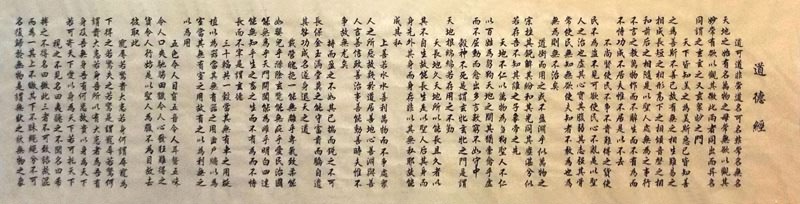 道德經
道可道非常道名可名非常名無名
天地之始有名萬物之母常無欲以觀其
妙常有欲以觀其徼此兩者同出而異名
同謂之玄玄之又玄眾妙之門
天下皆知美之為美斯惡已皆知善
之為善斯不善已故有無相生難易之
相成長短之相形高下之相傾音聲之相
和前後之相隨是以聖人處無為之事行
不言之教萬物作而不辭生而不有為而
不恃功成不居夫惟不居是以不去
不尚賢使民不爭不貴難得之貨使
民不為盜不見可欲使民心不亂是以聖
人之治虛其心實其腹弱其志強其骨
常使民無知無欲使夫知者不敢為也為
無為則無不治矣
道沖而用之或不盈淵乎似萬物之
宗挫其銳解其紛和其光同其塵湛兮似
若存吾不知其誰之子象帝之先
天地不仁以萬物為芻狗聖人不仁
以百姓為芻狗天地之間其猶橐籥乎虛
而不屈動而愈出多言數窮不如守中
谷神不死是謂玄牝玄牝之門是謂
天地根綿綿若存用之不勤
天長地久天地所以能長且久者以
其不自生故能長生是以聖人後其身而
身先外其身而身存非以其無私耶故能
成其私
上善若水水善利萬物而不爭處眾
人之所惡故幾於道居善地心善淵與善
人言善信政善治事善能動善時夫惟不
爭故無尤矣
持而盈之不如其已揣而銳之不可
長保金玉滿堂莫之能守富貴而驕自遺
其咎功成名遂身退天之道
載營魄抱一能無離乎專氣致柔能
如嬰兒乎滌除玄覽能無疵乎愛民治國
能無為乎天門開闔能為雌乎明白四達
能無知乎生之畜之生而不有為而不恃
長而不宰是謂玄德
三十輻共一轂當其無有車之用埏
埴以為器當其無有器之用鑿戶牖以為
室當其無有室之用故有之以為利無之
以為用
五色令人目盲五音令人耳聾五味
令人口爽馳騁田獵令人心發狂難得之
貨令人行妨是以聖人為腹不為目故去
彼取此
寵辱若驚貴大患若身何謂寵辱寵為
下得之若驚失之若驚是謂寵辱若驚何
謂貴大患若身吾所以有大患者為吾有
身及吾無身吾有何患故貴以身為天下
若可寄天下愛以身為天下若可託天下
視之不見名曰夷聽之不聞名曰希
搏之不得名曰微此三者不可致詰故混
而為一其上不皦其下不昧繩繩兮不可
名復歸於無物是謂無狀之狀無物之象